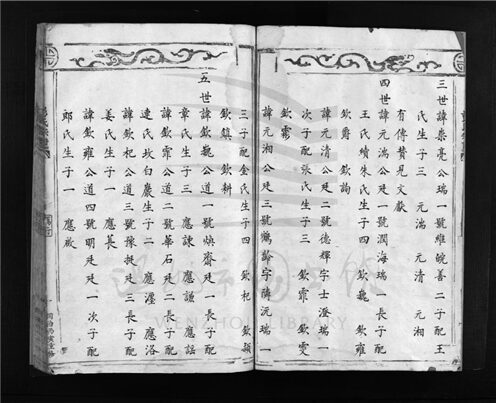 三世諱崇亮公瑞一號維皖善二子配王
氏生子三 元湍 元清 元湘
有傳贊見文獻
四世諱元湍公廷一號潤海瑞一長子配
王氏續朱氏生子四 欽巍 欽雍
欽爵 欽詢
諱元清公廷二號德輝字士澄瑞一
次子配張氏生子三 欽霏 欽雯
欽霧
諱元湘公廷三號 字 沅瑞一
三子配金氏生子四 欽杞 欽
欽鎮 欽耕
五世諱欽巍公道一號煥齋廷一長子配
章氏生子三 應諫 應謙 應謠
諱欽霏公道二號華石廷二長子配
連氏 白慶生子二 應濹 應洛
諱欽杞公道三號豫挺廷三長子配
姜氏生子一 應萇
諱欽雍公道四號明廷廷一次子配
鄭氏生子一 應厫
WENZHOU LIBRARY